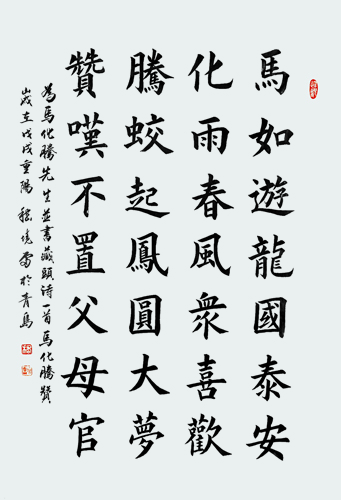 馬如遊龍國泰安
化雨春風衆喜歡
騰蛟起鳳圓大夢
贊嘆不置父母官
為馬化騰先生並書藏頭诗一首馬化騰贊
歲在戊戌重陽 於青島